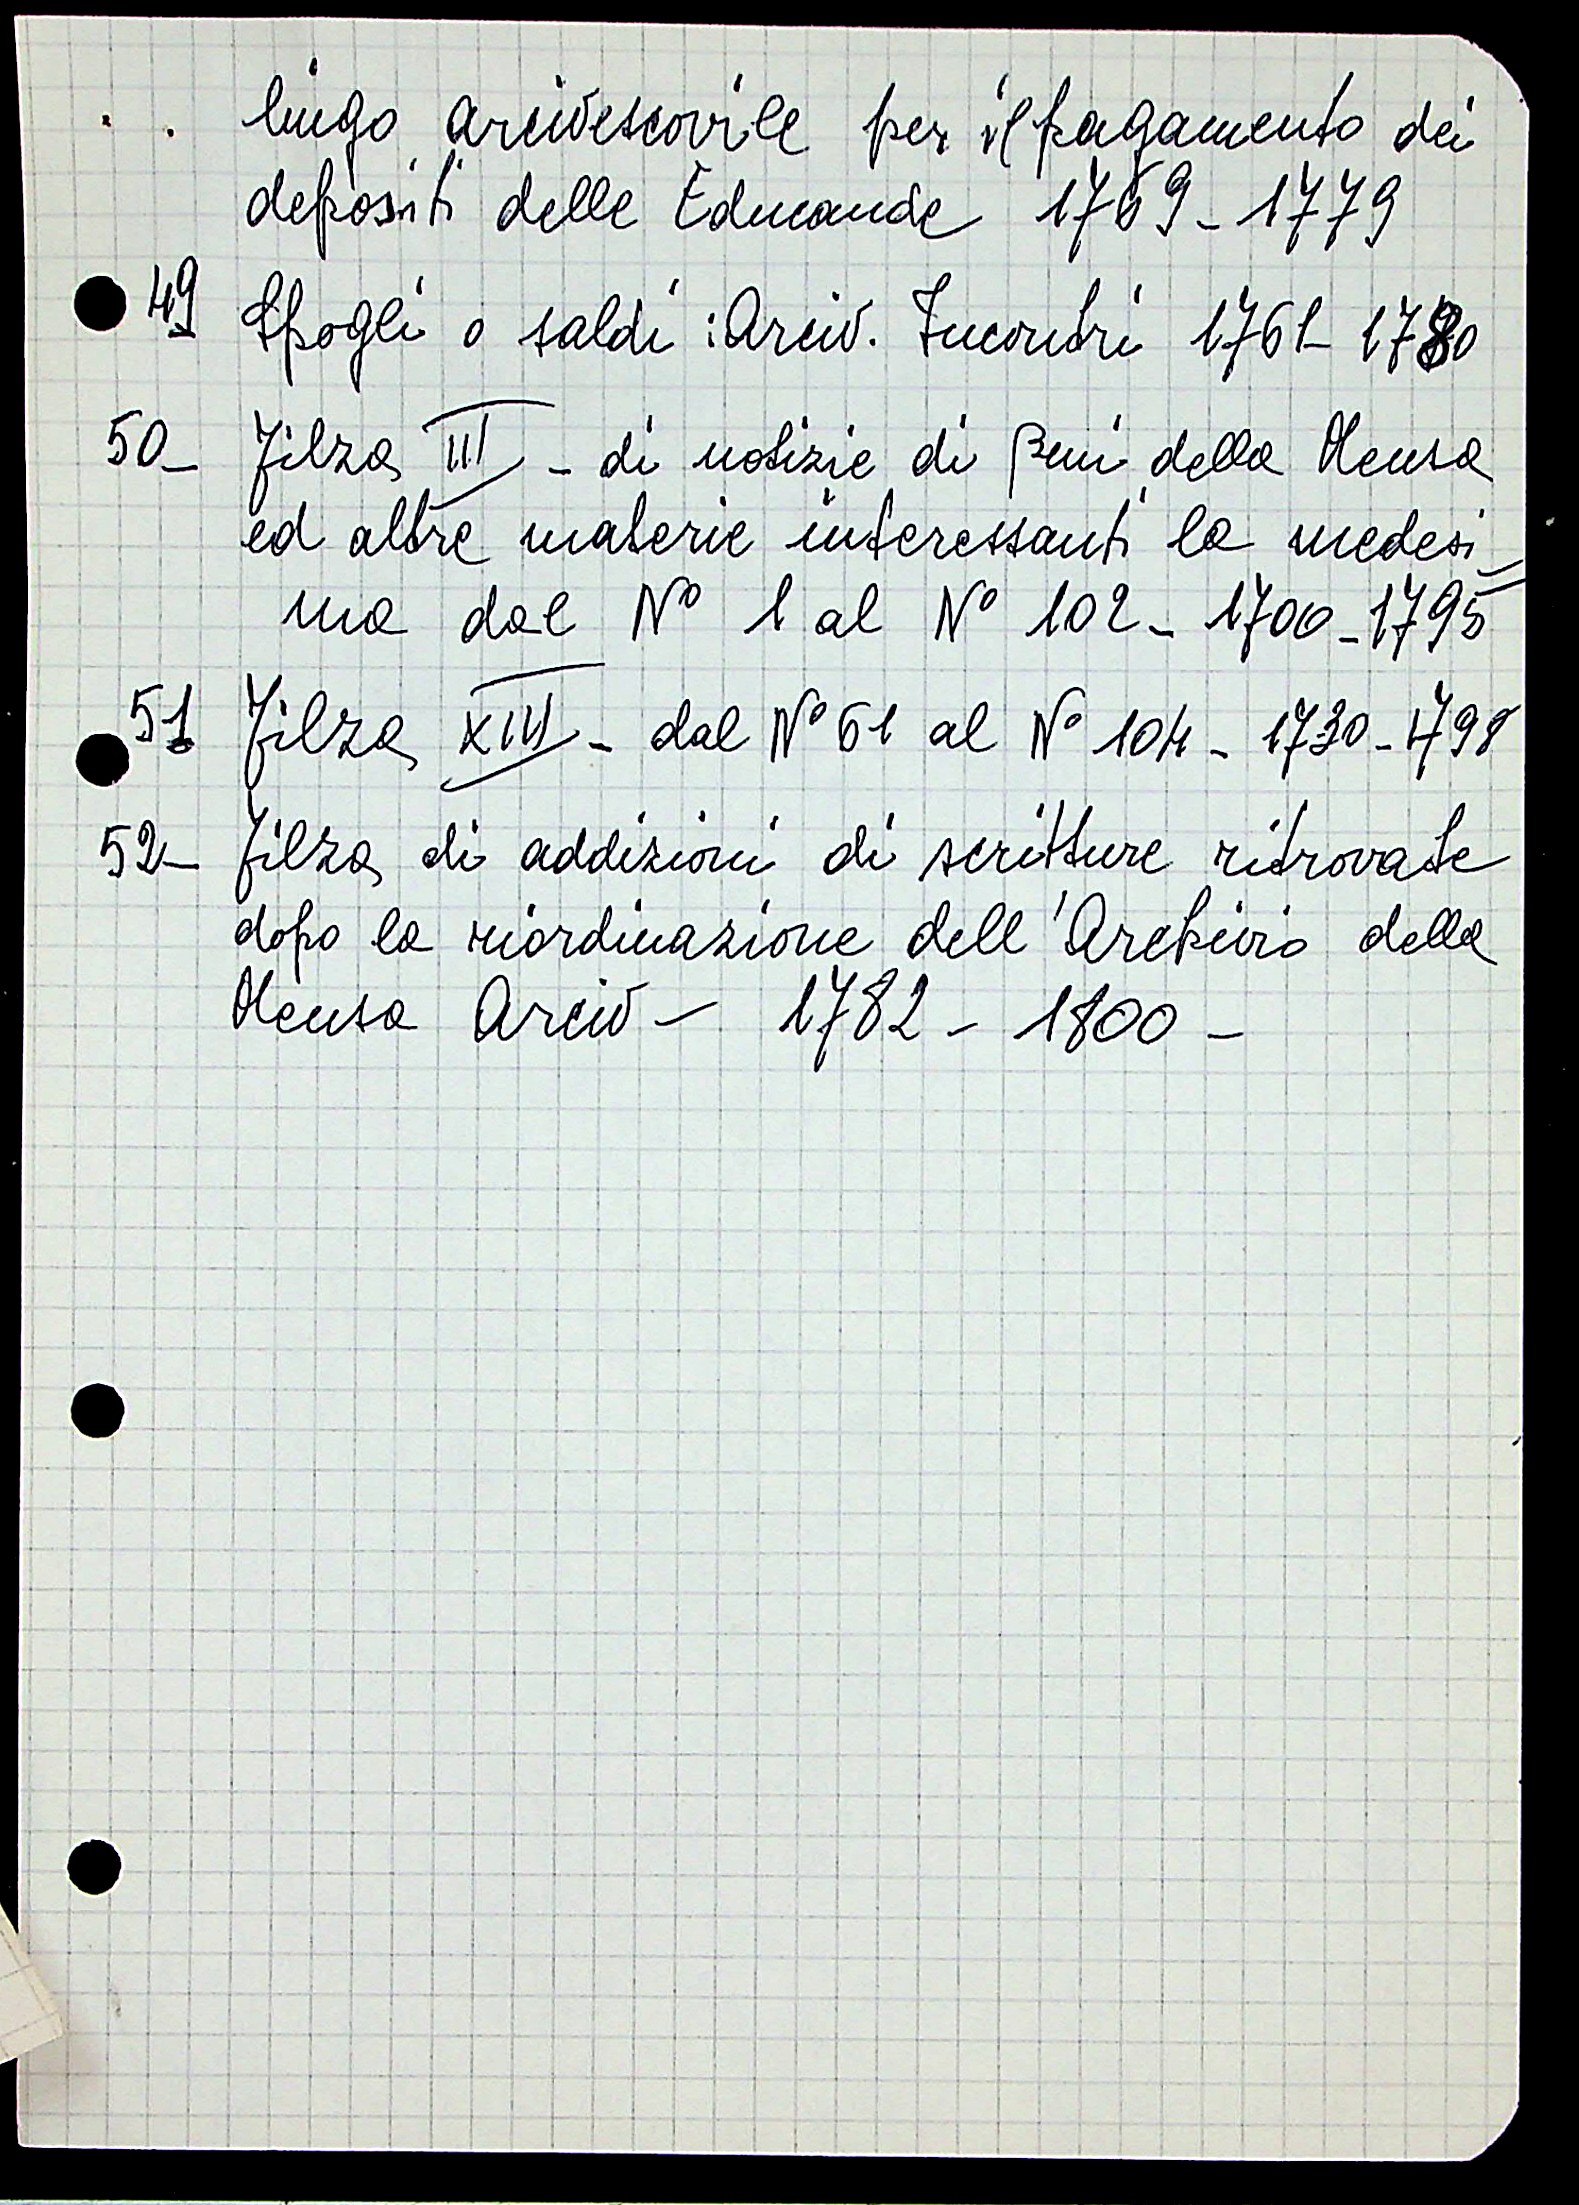 lingo arcivescovile per il pagamento dei
depositi delle Educande 1769-1779
49 Spogli o saldi: Arciv. Incontri 1761-1780
50- Filza III - di notizie di Beni della Mensa
ed altre materie interessanti la medesi=
ma dal N° 1 al N° 102 - 1700-1795
51 Filza XIII - dal N° 61 al N° 104 - 1730-1798
52- Filza di addizioni di scritture ritrovate
dopo la riordinazione dell'Archivio della
Mensa Arciv - 1782 - 1800 -